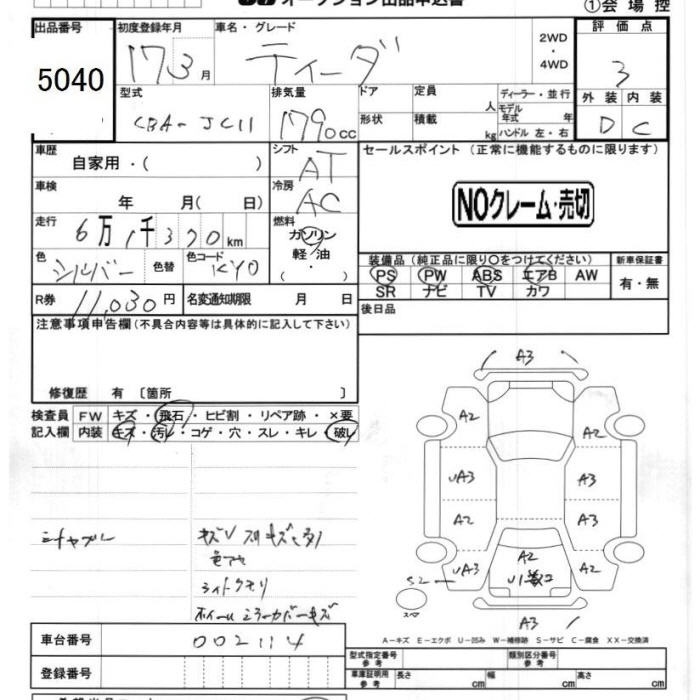 オークション出品申込書
①会場控
出品番号 初度登録年月 車名・グレード 2WD・4WD 評価点
5040 17 3月 ティーダ 3
型式 排気量 ドア 定員 人 ディーラー・並行 外装 内装
CBA-JC11 1790cc 形状 積載 kg モデル年式 年 ハンドル 左・右 D C
車歴 自家用・( ) シフト AT セールスポイント (正常に機能するものに限ります)
車検 年 月( 日) 冷房 AC NOクレーム・売切
走行 6万1千320km 燃料 ガソリン 軽油・
色 シルバー 色替 色コード KY0 装備品(純正品に限り○をつけてください) 新車保証書
PS PW ABS エアB AW 有・無
SR ナビ TV カワ
R券 11,030円 名変通知期限 月 日 後日品
注意事項申告欄(不具合内容等は具体的に記入して下さい)
修復歴 有 〔箇所 〕
検査員 FW キズ・飛石・ヒビ割・リペア跡・×要
記入欄 内装 キズ・汚レ・コゲ・穴・スレ・キレ・破レ
A3
A2 A2
UA3 A3
A2 A3
UA3 A2 A2
S2
スペア
A3
ライトクモリ
ホイールミラーカバーキズ
A－キズ E－エクボ U－凹み W－補修跡 S－サビ C－腐食 XX－交換済
車台番号 002114
登録番号
型式指定番号 参考 類別区分番号 参考
車庫証明用 参考 長さ cm 幅 cm 高さ cm